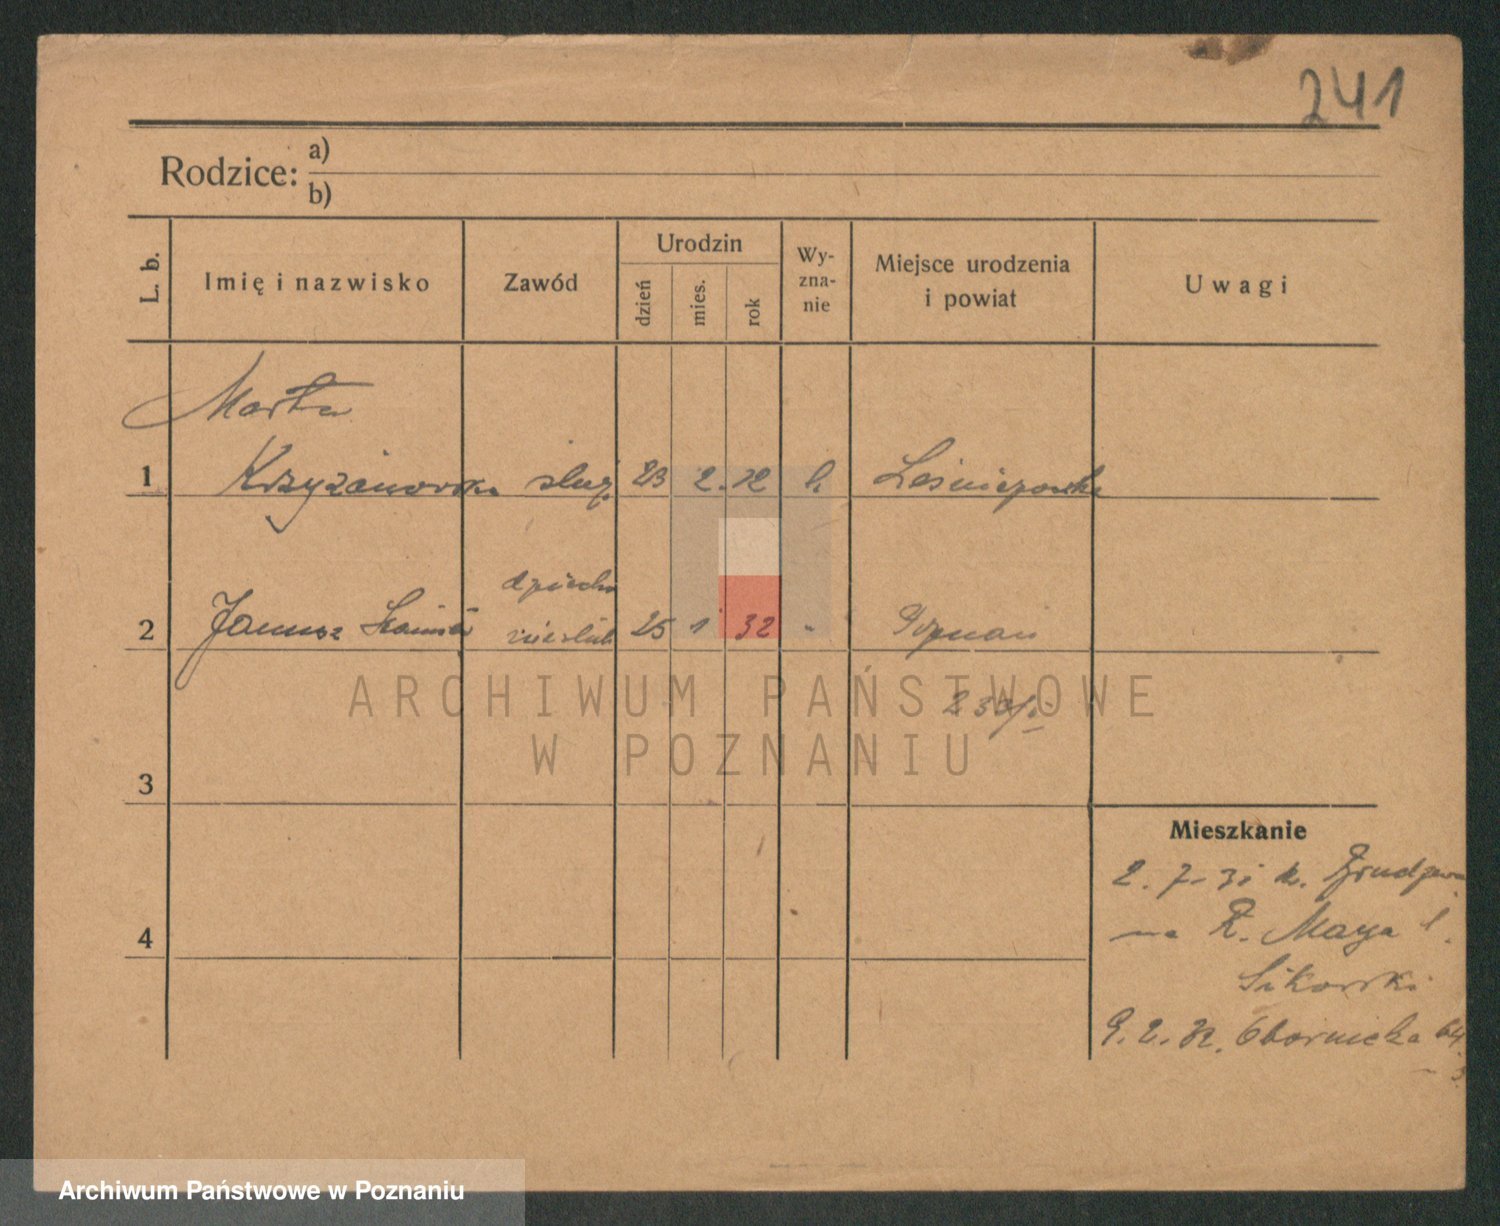 241
Rodzice: a)
b)
L. b.
Imię i nazwisko
Zawód
Urodzin
dzień
mies.
rok
Wy-
zna-
nie
Miejsce urodzenia
i powiat
Uwagi
Marta
1 Krzyżanowska służ. 23 2. 12 k.
dziecko
2 Janusz 25 1 32 " Poznań
3
4
ARCHIWUM PAŃSTWOWE
W POZNANIU
Mieszkanie
2. 7. 31
na Maya
Sikorski
9. 2. 32. Obornicka 64
Archiwum Państwowe w Poznaniu